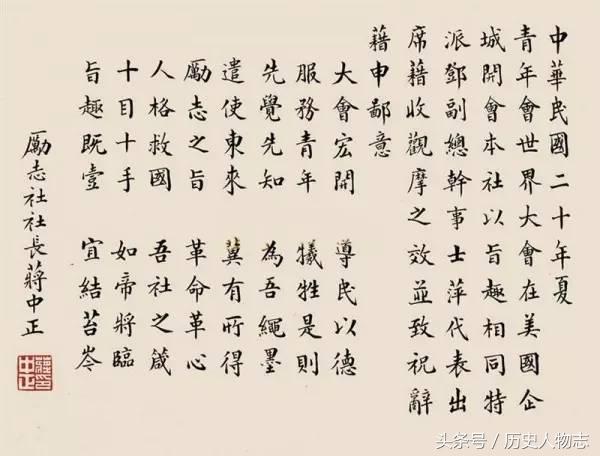 中華民國二十年夏
青年會世界大會在美國企
城開會本社以旨趣相同特
派鄧副總幹事士萍代表出
席藉收觀摩之效並致祝辭
藉申鄙意
大會宏開 導民以德
服務青年 犧牲是則
先覺先知 為吾繩墨
遣使東來 冀有所得
勵志之旨 革命革心
人格救國 吾社之箴
十目十手 如帝將臨
旨趣既壹 宜結苔岑
勵志社社長蔣中正
蔣中正印
头条号 / 历史人物志